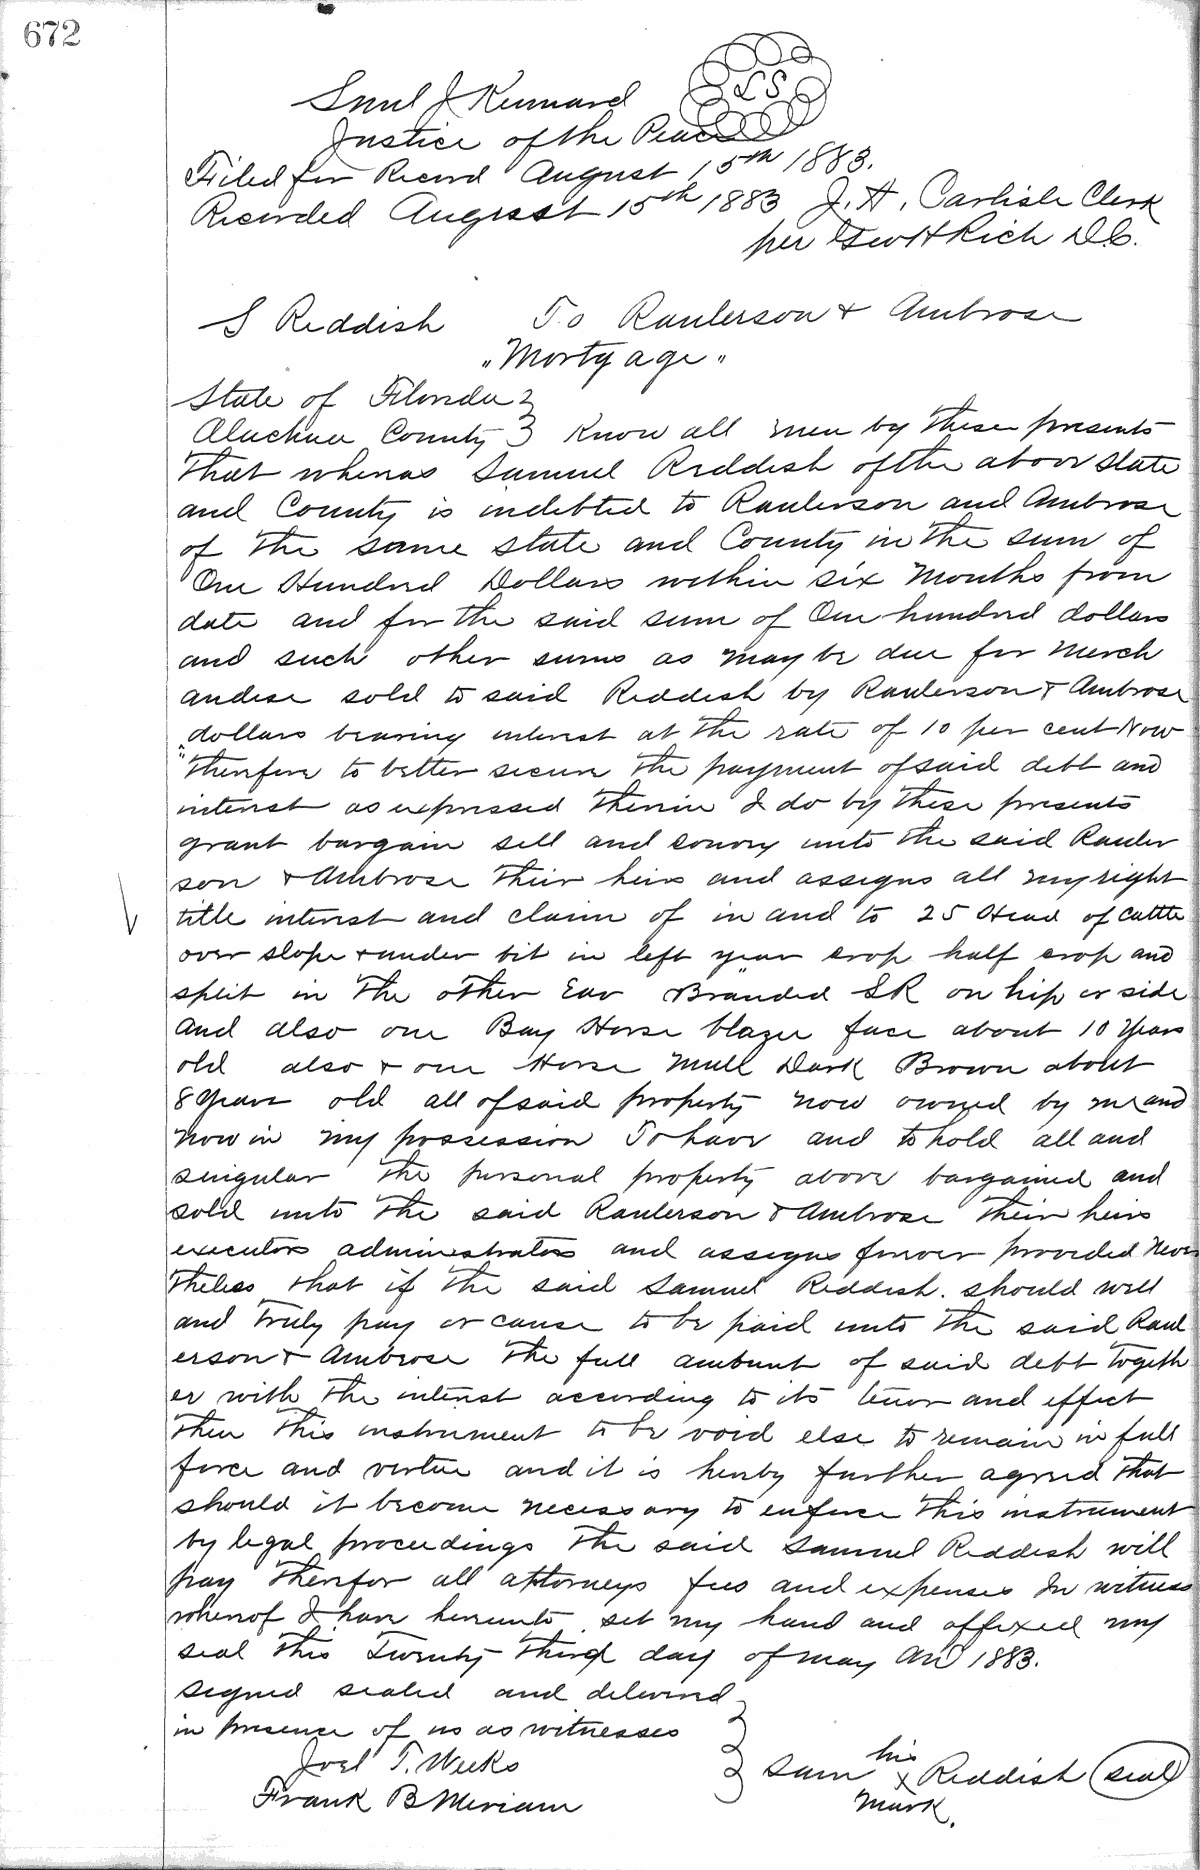 672
Saml J Kennard
L S
Justice of the Peace
Filed for Record August 15th 1883.
Recorded August 15th 1883 J. A. Carlisle Clerk
per Geo H Rich D.C.
S Reddish To Raulerson & Ambrose
"Mortgage"
State of Florida }
Alachua County } Know all men by these presents
that whereas Samuel Reddish of the above state
and County is indebted to Raulerson and Ambrose
of the same state and County in the sum of
One Hundred Dollars within six Months from
date and for the said sum of One hundred dollars
and such other sums as may be due for Merch
andise sold to said Reddish by Raulerson & Ambrose
dollars bearing interest at the rate of 10 per cent Now
therefore to better secure the payment of said debt and
interest as expressed therein I do by these presents
grant bargain sell and convey unto the said Rauler
son & Ambrose their heirs and assigns all my right
title interest and claim of in and to 25 Head of cattle
over slope & under bit in left "year" crop half crop and
split in the other Ear Branded SR on hip or side
and also one Bay Horse blaze face about 10 Years
old also & one Horse Mull Dark Brown about
8 Years old all of said property now owned by me and
now in my possession To have and to hold all and
singular the personal property above bargained and
sold unto the said Raulerson & Ambrose their heirs
executors administrators and assigns forever provided never
theless that if the said Samuel Reddish. should well
and truly pay or cause to be paid unto the said Raul
erson & Ambrose the full ambunt of said debt togeth
er with the interest according to its tenor and effect
then this instrument to be void else to remain in full
force and virtue and it is hereby further agreed that
should it become necessary to enforce this instrument
by legal proceedings the said Samuel Reddish will
pay therefor all attorneys fees and expenses In witness
whereof I have hereunto set my hand and affixed my
seal this Twenty third day of may AD 1883.
signed sealed and delivered }
in presence of us as witnesses }
Joel T. Weeks } his
Sam x Reddish (seal)
Frank B Meriam mark.